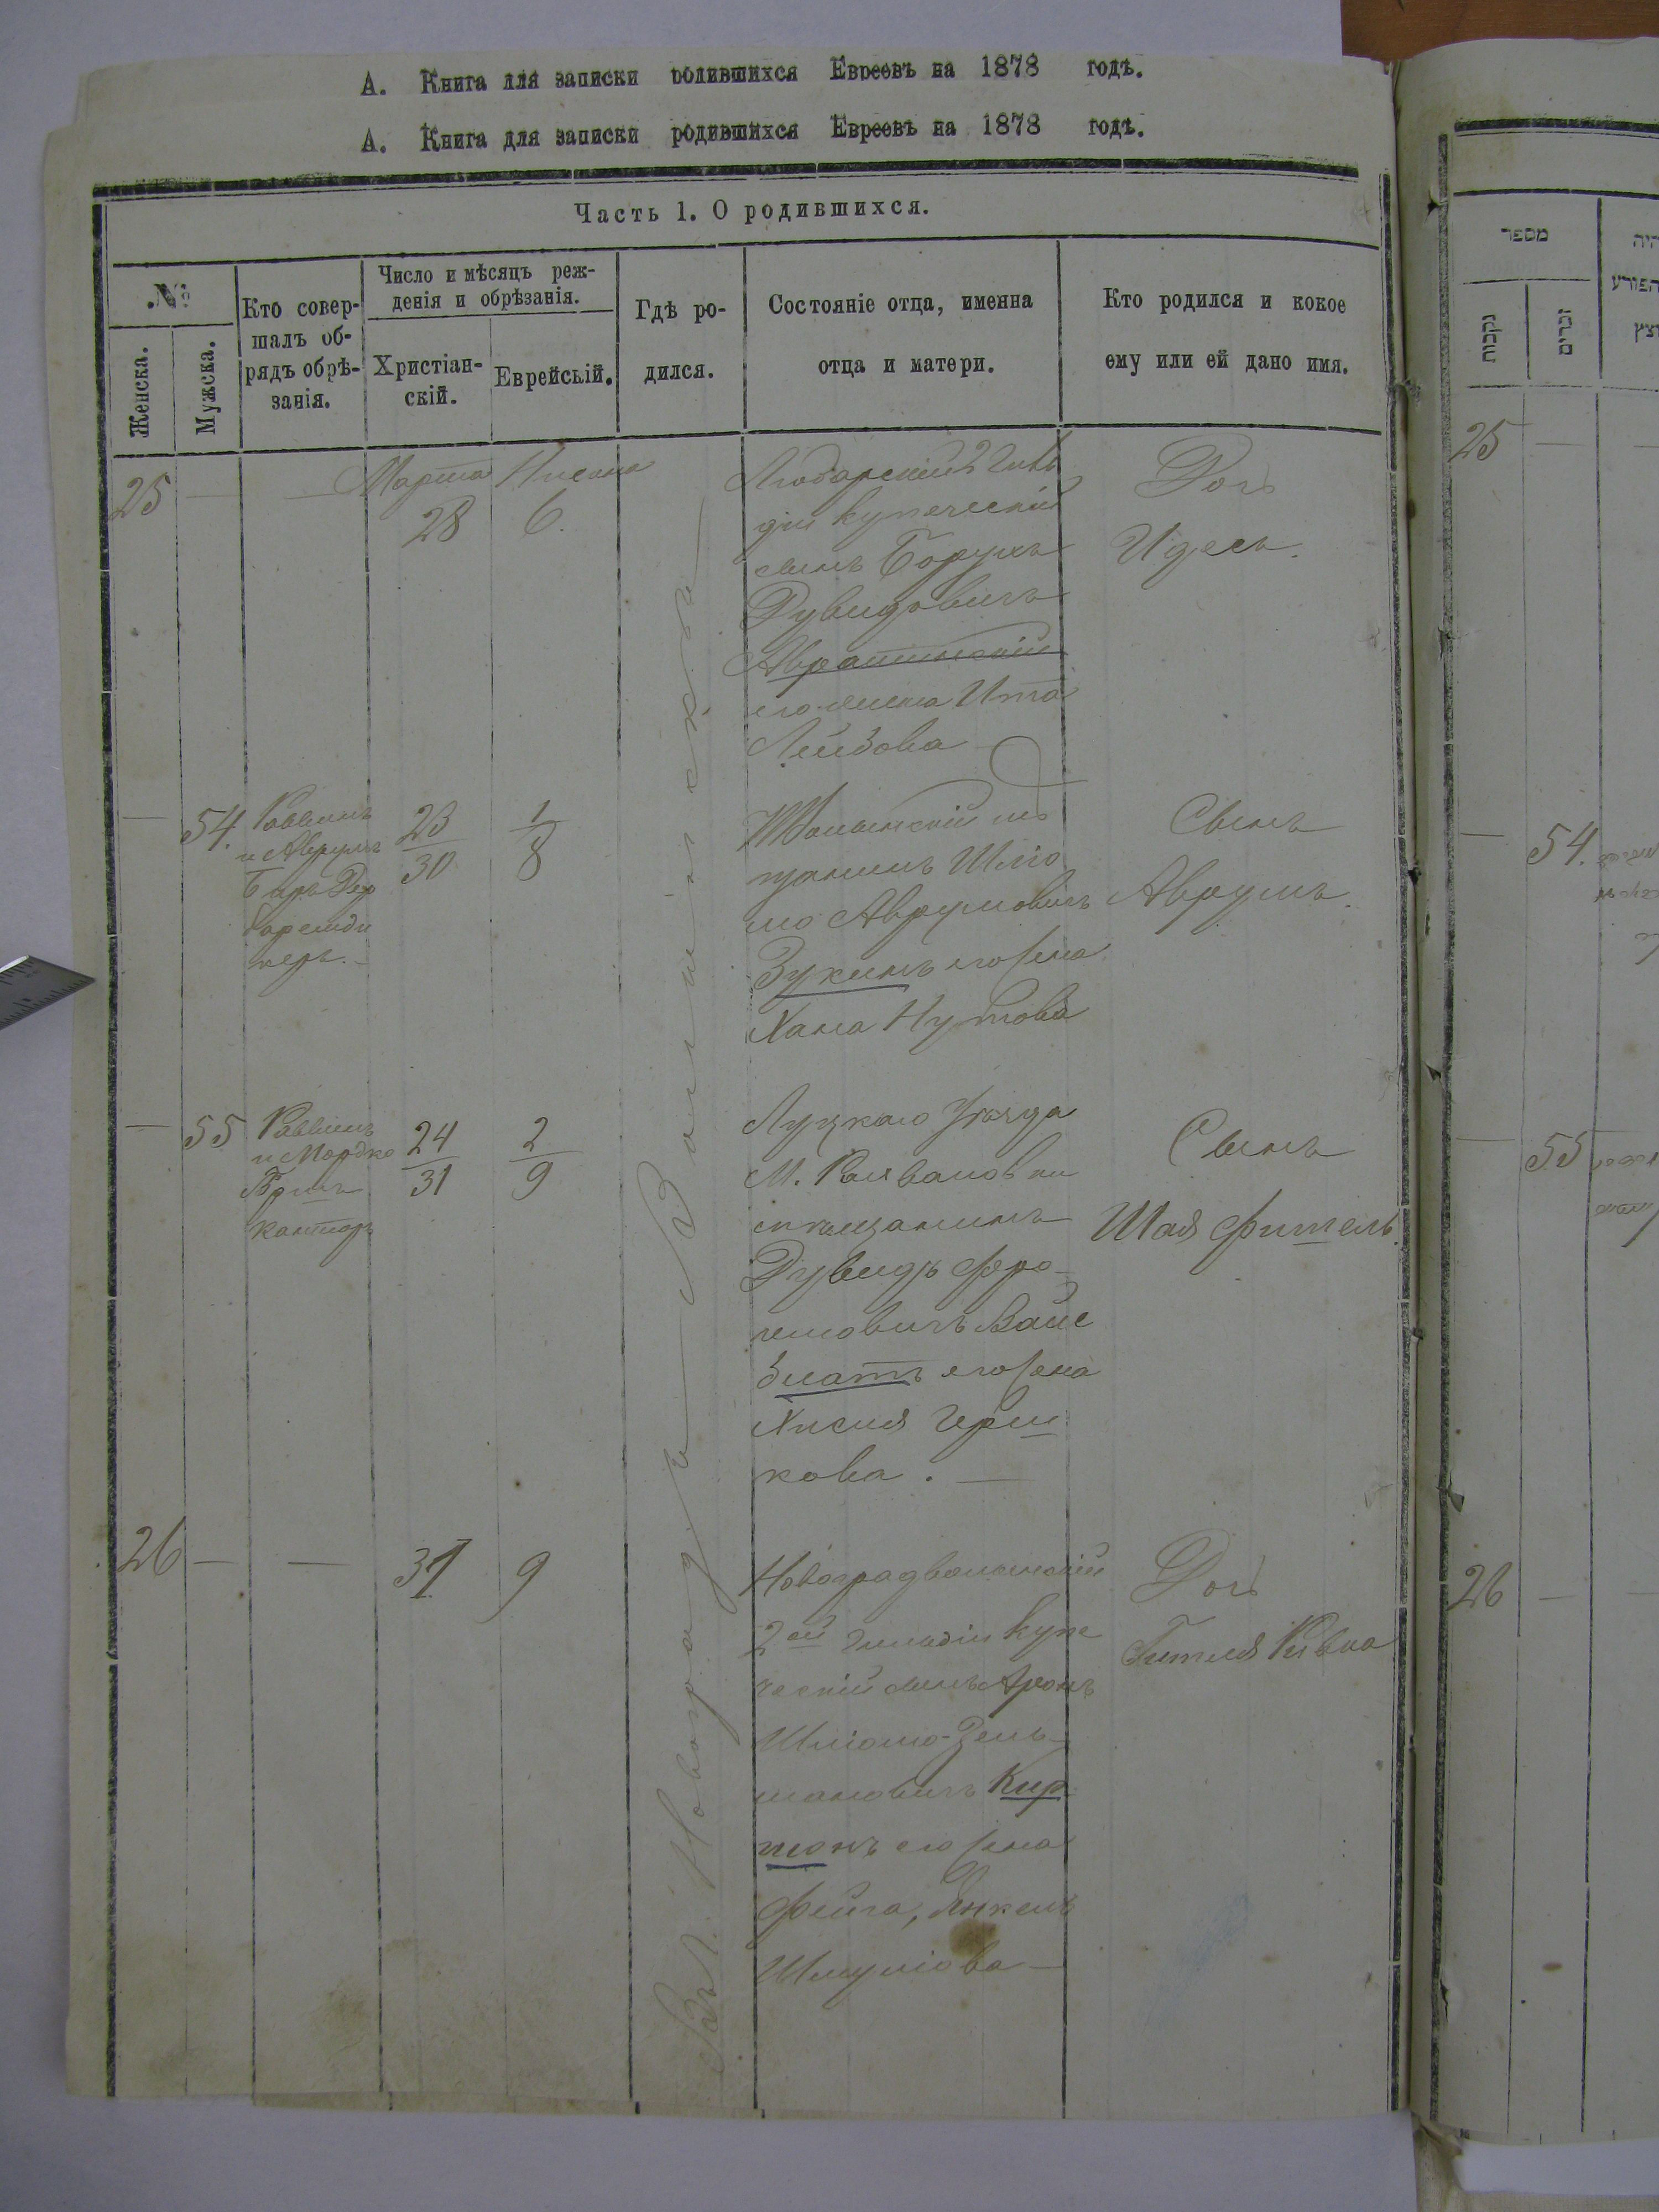 А. Книга для записки родившихся Евреевъ на 1878 годъ.
А. Книга для записки родившихся Евреевъ на 1878 годъ.
Часть 1. О родившихся.
№
Женска.
Мужска.
Кто совер-
шалъ об-
рядъ обрѣ-
занія.
Число и мѣсяцъ реж-
денія и обрѣзанія.
Христіан-
скій.
Еврейсьій.
Гдѣ ро-
дился.
Состояніе отца, именна
отца и матери.
Кто родился и кокое
ему или ей дано имя.
25 — — Марта Нисона
28 6.
Любарскій 2 Гиль
діи купеческій
сынъ Борухъ
Дувидовичъ
Авратинскій
его жена Ита
Лейбова
Дочь
Идесь.
— 54. Раввинъ
и Аврумъ
Беръ
23
30
1
8
Шліо
мо Аврумовичъ
Зукинъ его жена
Хана Нутова
Сынъ
Аврумъ.
— 55 Раввинъ
и Мордко
Кантор
24
31
2
9
Луцкаго Уѣзда
М.
мѣщанинъ
Дувидъ Фро
имовичъ Вайс
блатъ его жена
Хисия Герш
кова. —
Сынъ
Шая Фишель.
26 — — 31 9
Новоградволынскій
2ой гильдіи купе
ческій сынъ Аронъ
Шліомо-Зель
мановичъ Кир
жонъ его жена
Фейга, Янкель
Шмуліова —
Дочь
Гитля Ривка
Въ г. Новоградѣ — Волынскѣ —
מספר
נקבות
זכרים
25 —
— 54.
— 55
26 —